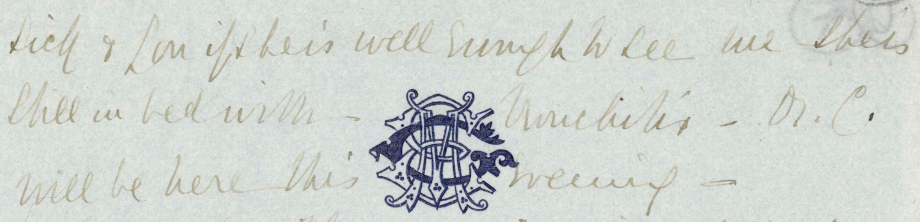 sick & Lou if she is well Enough to see me she is
still in bed with - Bronchitis - Dr. C.
will be here this evening -